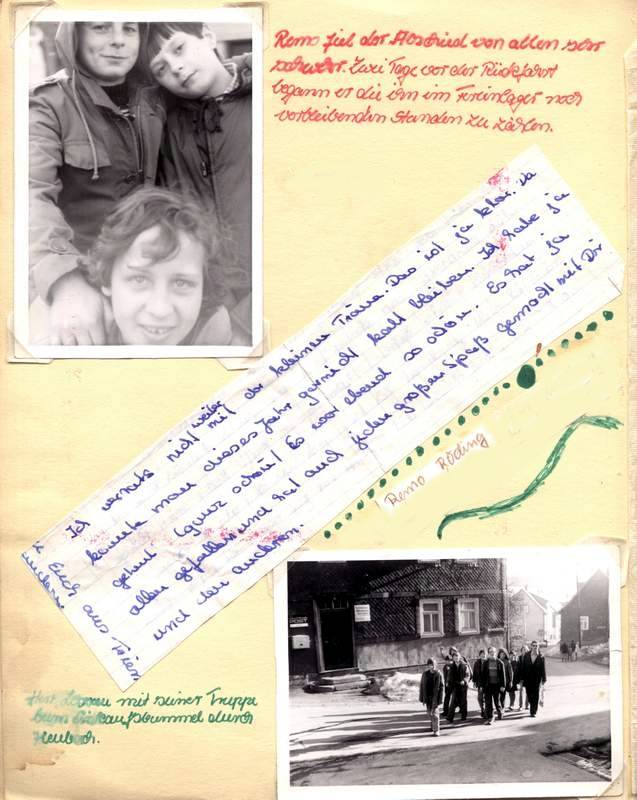 Remo fiel der Abschied von allen sehr
schwer. Zwei Tage vor der Rückfahrt
begann er die ihm im Ferienlager noch
verbleibenden Stunden zu zählen.
Ich verrate nicht weiter
mit der kleinen Träne. Das ist ja klar. Da
konnte man dieses Jahr garnicht kalt bleiben. Ich habe ja
geheut (ganz schön)! Es war ebend so schön. Es hat ja
allen gefallen und hat auch jeden großen Spaß gemacht mit Dir
und den anderen.
Euch aus Trien
Remo Röding
POST
Herr mit seiner Truppe
beim Einkaufsbummel durch
Heubach.